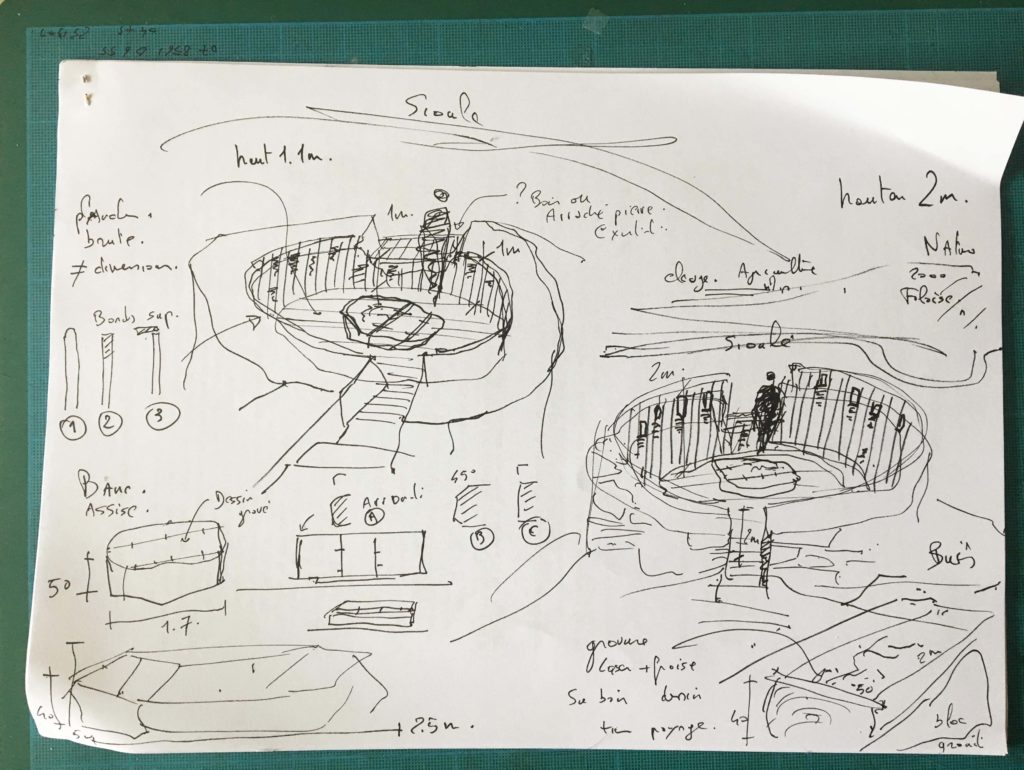 Sioule
haut 1.1m.
hauteur 2m.
planche.
brute.
≠ dimension.
1m.
? Bois ou
Arrache pierre.
1m
Bords sup.
1 2 3
Natura
2000
Falaise
Agriculture
Sioule
2m.
Banc.
Assise.
Dessin
gravé
Arrondi
A
45°
B
C
50
1.7.
2m
gravure
laser + fraise
Sur bois dessin
paysage.
2m
50
40
bloc
granit
40
2.5m.